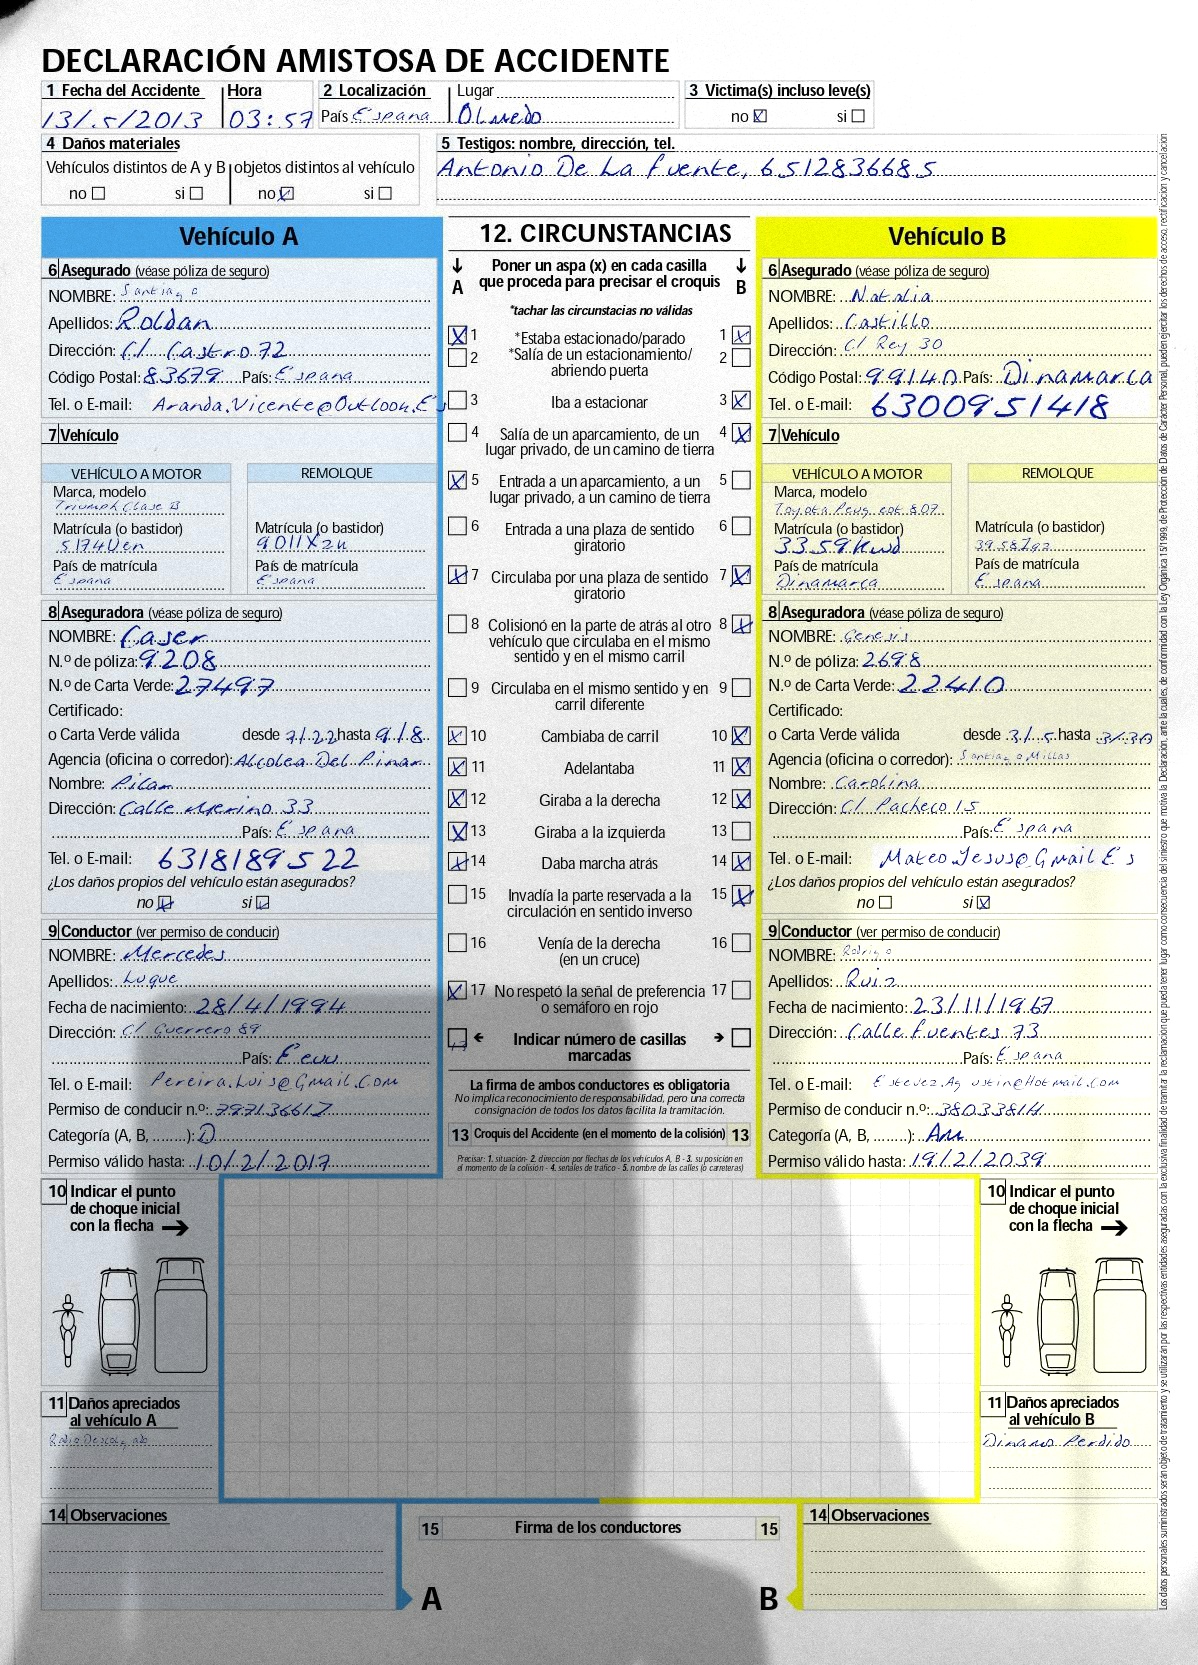 DECLARACIÓN AMISTOSA DE ACCIDENTE
1 Fecha del Accidente Hora 2 Localización Lugar 3 Victima(s) incluso leve(s)
13/5/2013 03:57 País Espana Olmedo no si
4 Daños materiales 5 Testigos: nombre, dirección, tel.
Vehículos distintos de A y B objetos distintos al vehículo Antonio De La Fuente, 6512836685
no si no si
Vehículo A
6 Asegurado (véase póliza de seguro)
NOMBRE: Santiago
Apellidos: Roldan
Dirección: C/ Castro 72
Código Postal: 83679 País: Espana
Tel. o E-mail: Aranda.Vicente@Outlook.Es
7 Vehículo
VEHÍCULO A MOTOR REMOLQUE
Marca, modelo
Triumph Clase B
Matrícula (o bastidor) Matrícula (o bastidor)
5174Uen 9011Xzn
País de matrícula País de matrícula
Espana Espana
8 Aseguradora (véase póliza de seguro)
NOMBRE: Caser
N.º de póliza: 9208
N.º de Carta Verde: 27497
Certificado:
o Carta Verde válida desde 7/22 hasta 9/8
Agencia (oficina o corredor): Alcolea Del Pinar
Nombre: Pilar
Dirección: Calle Merino 33
País: Espana
Tel. o E-mail: 6318189522
¿Los daños propios del vehículo están asegurados?
no si
9 Conductor (ver permiso de conducir)
NOMBRE: Mercedes
Apellidos: Luque
Fecha de nacimiento: 28/4/1994
Dirección: C/ Guerrero 89
País: Eeuu
Tel. o E-mail: Pereira.Luis@Gmail.Com
Permiso de conducir n.º: 79713661Z
Categoría (A, B, ........): D
Permiso válido hasta: 10/2/2017
12. CIRCUNSTANCIAS
A Poner un aspa (x) en cada casilla que proceda para precisar el croquis B
*tachar las circunstacias no válidas
1 *Estaba estacionado/parado 1
2 *Salía de un estacionamiento/ 2
abriendo puerta
3 Iba a estacionar 3
4 Salía de un aparcamiento, de un 4
lugar privado, de un camino de tierra
5 Entrada a un aparcamiento, a un 5
lugar privado, a un camino de tierra
6 Entrada a una plaza de sentido 6
giratorio
7 Circulaba por una plaza de sentido 7
giratorio
8 Colisionó en la parte de atrás al otro 8
vehículo que circulaba en el mismo
sentido y en el mismo carril
9 Circulaba en el mismo sentido y en 9
carril diferente
10 Cambiaba de carril 10
11 Adelantaba 11
12 Giraba a la derecha 12
13 Giraba a la izquierda 13
14 Daba marcha atrás 14
15 Invadía la parte reservada a la 15
circulación en sentido inverso
16 Venía de la derecha 16
(en un cruce)
17 No respetó la señal de preferencia 17
o semáforo en rojo
Indicar número de casillas
marcadas
La firma de ambos conductores es obligatoria
No implica reconocimiento de responsabilidad, pero una correcta
consignación de todos los datos facilita la tramitación.
13 Croquis del Accidente (en el momento de la colisión) 13
Precisar: 1. situación- 2. dirección por flechas de los vehículos A, B - 3. su posición en
el momento de la colisión - 4. señales de tráfico - 5. nombre de las calles (o carreteras)
Vehículo B
6 Asegurado (véase póliza de seguro)
NOMBRE: Natalia
Apellidos: Castillo
Dirección: C/ Rey 30
Código Postal: 99140 País: Dinamarca
Tel. o E-mail: 6300951418
7 Vehículo
VEHÍCULO A MOTOR REMOLQUE
Marca, modelo
Toyota Peugeot 807
Matrícula (o bastidor) Matrícula (o bastidor)
3359Kwd 3958Zgz
País de matrícula País de matrícula
Dinamarca Espana
8 Aseguradora (véase póliza de seguro)
NOMBRE: Genesis
N.º de póliza: 2698
N.º de Carta Verde: 22410
Certificado:
o Carta Verde válida desde 3/5 hasta 3/30
Agencia (oficina o corredor): Santiago Millas
Nombre: Carolina
Dirección: C/ Pacheco 15
País: Espana
Tel. o E-mail: Mateo.Jesus@Gmail Es
¿Los daños propios del vehículo están asegurados?
no si
9 Conductor (ver permiso de conducir)
NOMBRE: Rodrigo
Apellidos: Ruiz
Fecha de nacimiento: 23/11/1967
Dirección: Calle Fuentes 73
País: Espana
Tel. o E-mail: Estevez.Agustin@Hotmail.Com
Permiso de conducir n.º: 3803381H
Categoría (A, B, ........): Am
Permiso válido hasta: 19/2/2039
10 Indicar el punto
de choque inicial
con la flecha
11 Daños apreciados
al vehículo A
Radio Descolgado
10 Indicar el punto
de choque inicial
con la flecha
11 Daños apreciados
al vehículo B
Dinamo Perdido
14 Observaciones
15 Firma de los conductores 15
A B
14 Observaciones